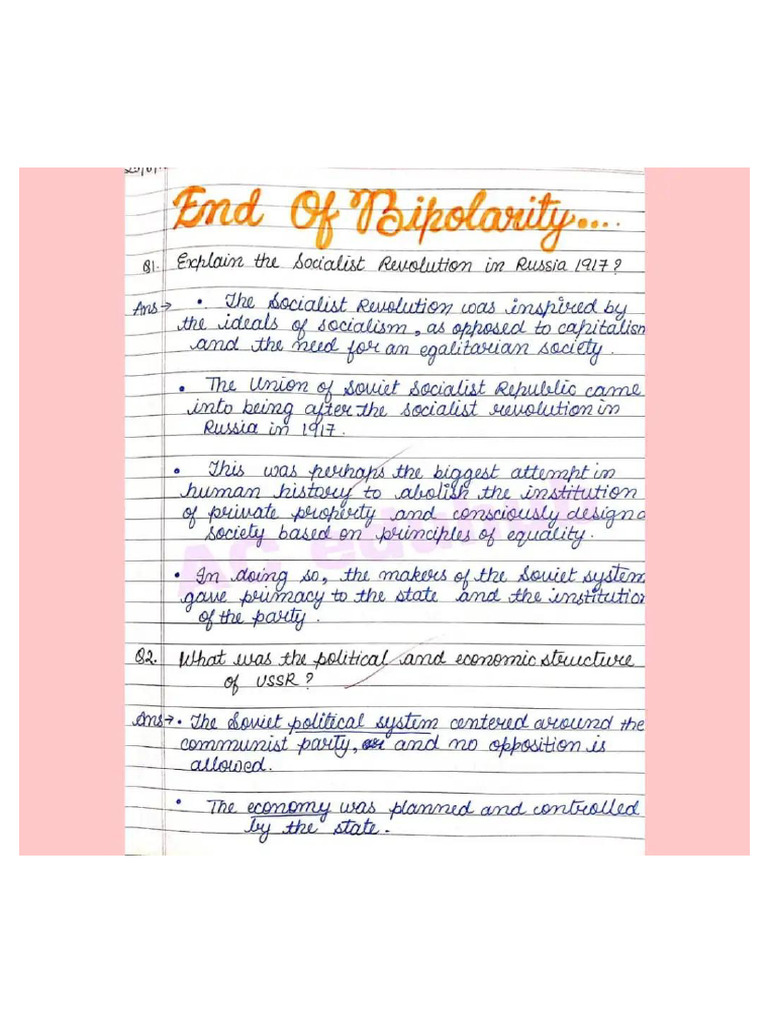 End Of Bipolarity....
Q1. Explain the Socialist Revolution in Russia 1917?
Ans→ • The Socialist Revolution was inspired by
the ideals of socialism, as opposed to capitalism
and the need for an egalitarian society.
• The Union of Soviet Socialist Republic came
into being after the socialist revolution in
Russia in 1917.
• This was perhaps the biggest attempt in
human history to abolish the institution
of private property and consciously design a
society based on principles of equality.
• In doing so, the makers of the Soviet system
gave primacy to the state and the institution
of the party.
Q2. What was the political and economic structure
of USSR?
Ans→ • The Soviet political system centered around the
communist party, and no opposition is
allowed.
• The economy was planned and controlled
by the state.